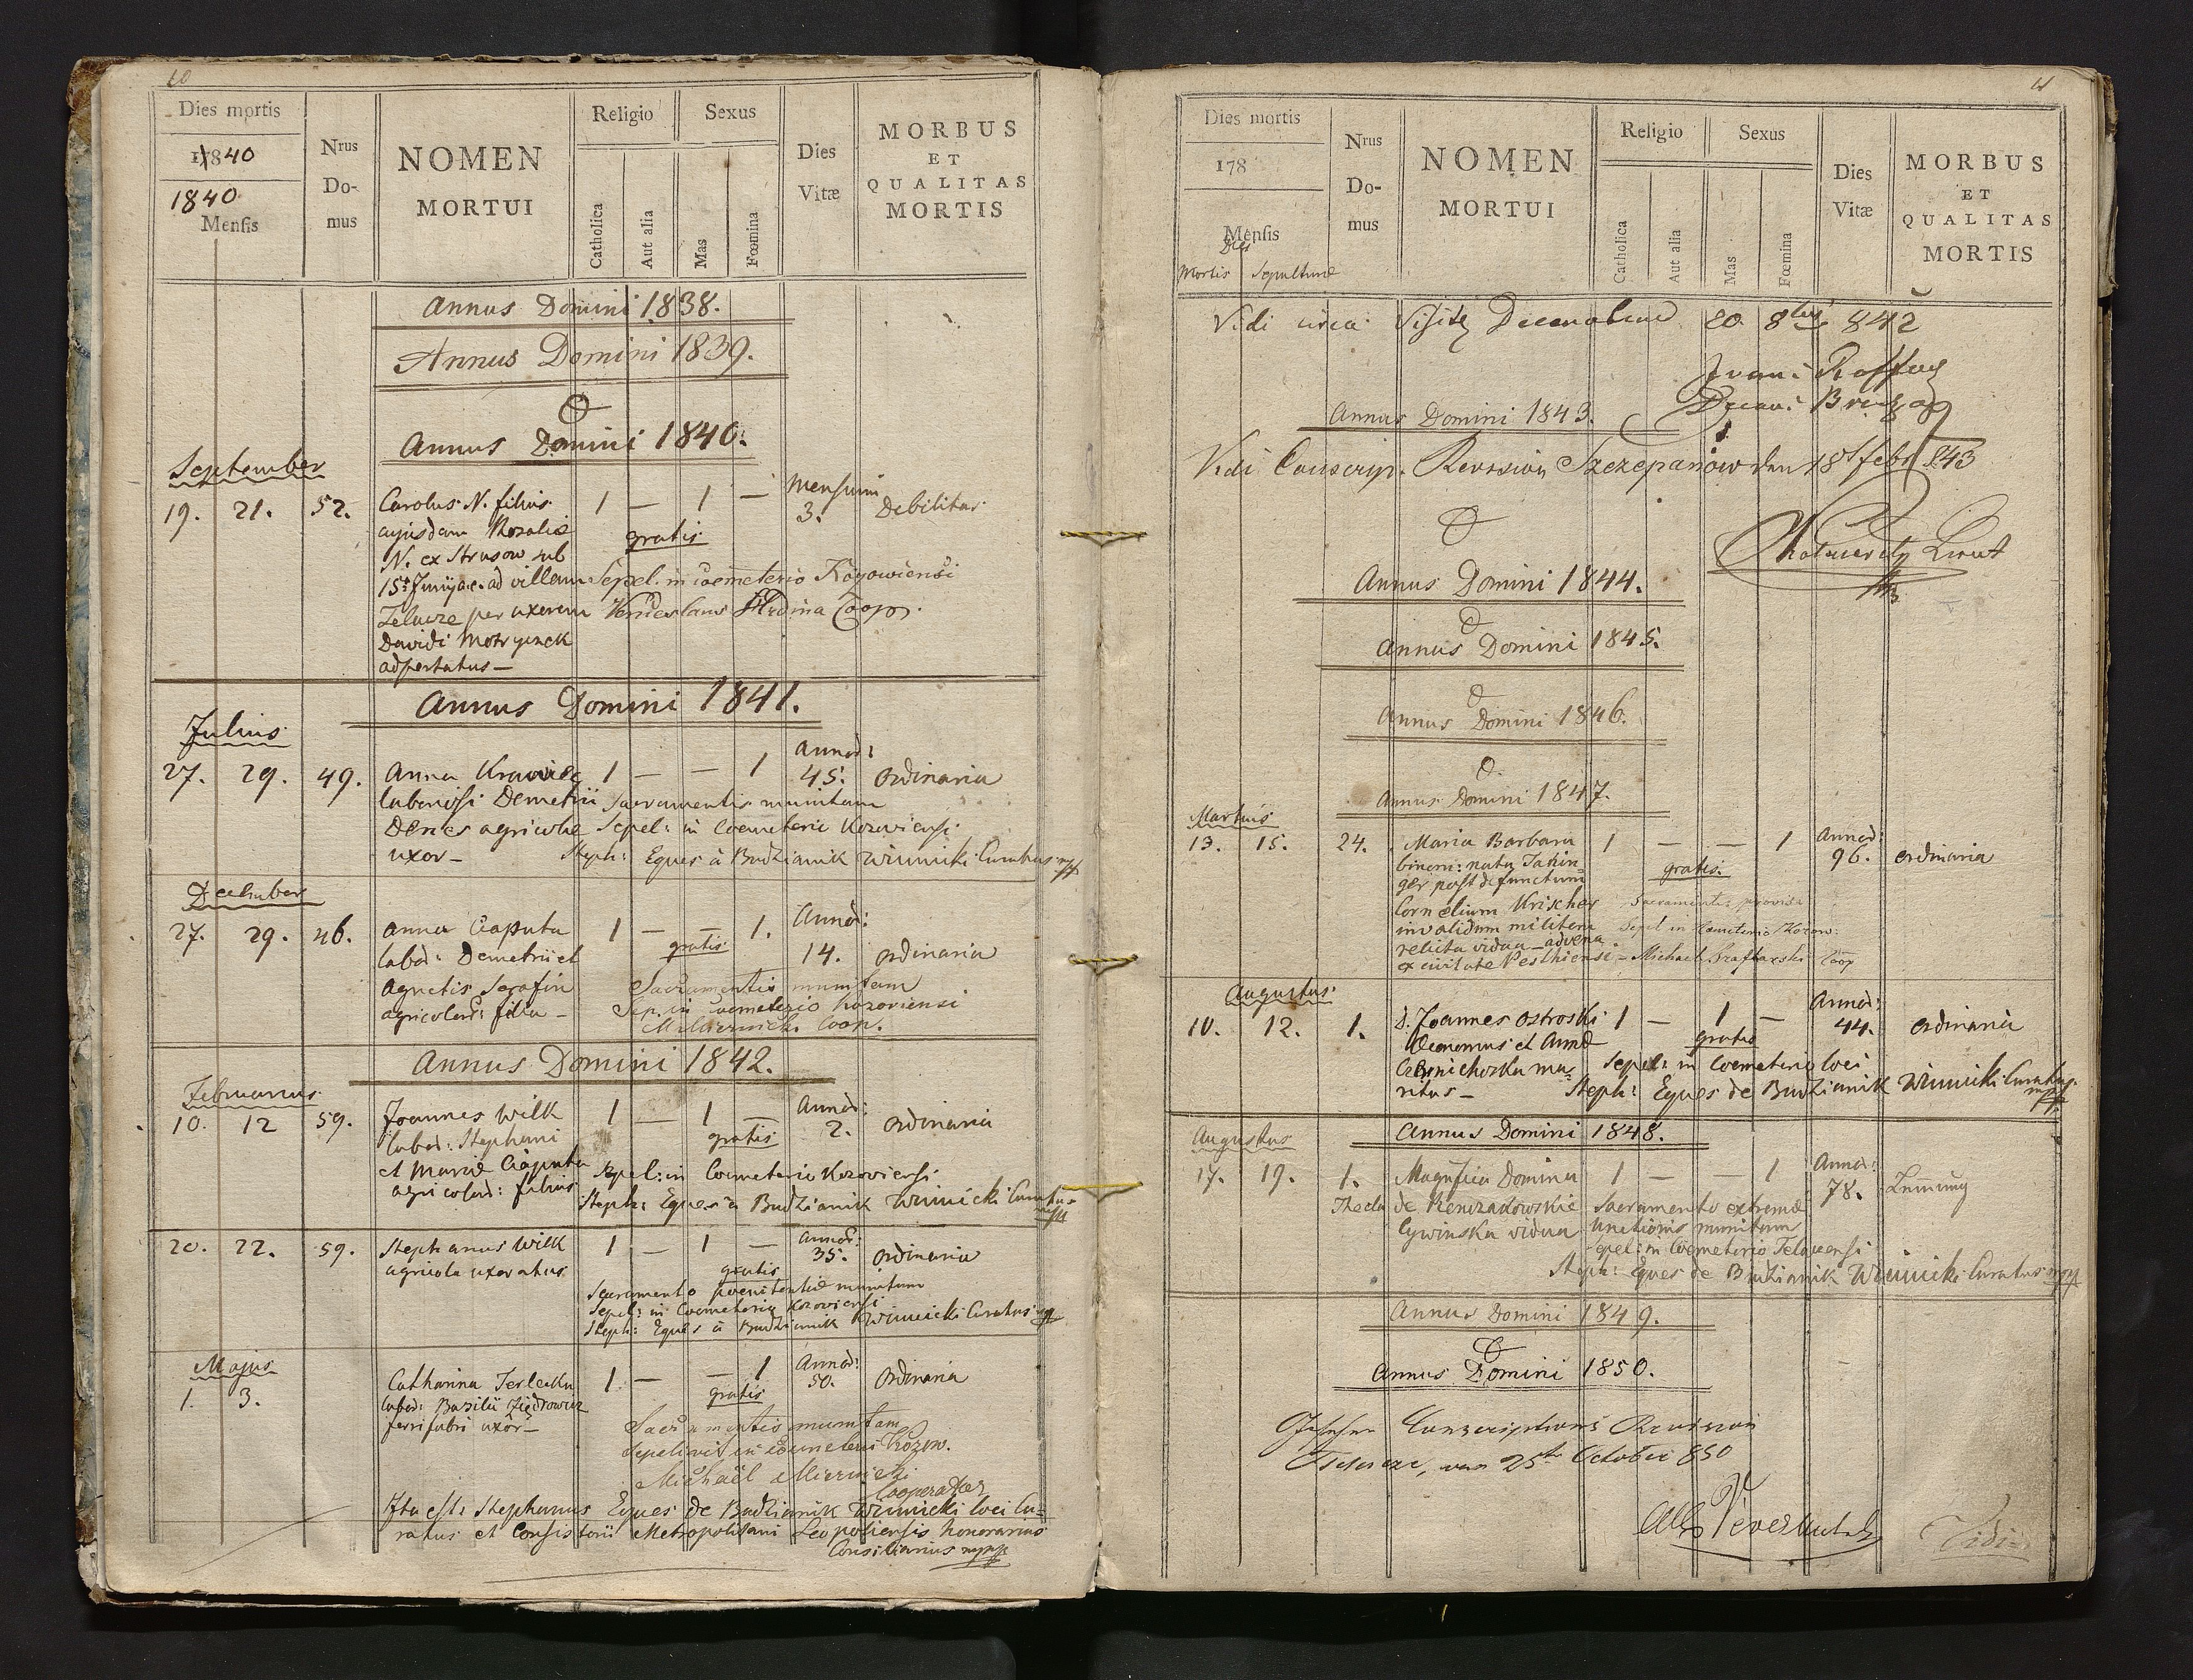 10
Dies mortis
1840
1840
Menſis
Nrus
Do-
mus
NOMEN
MORTUI
Religio
Catholica
Aut alia
Sexus
Mas
Fœmina
Dies
Vitæ
MORBUS
ET
QUALITAS
MORTIS
Annus Domini 1838.
Annus Domini 1839.
Annus Domini 1840.
September
19. 21. 52. Carolus N. filius 1 — 1 — Mensium 3. Debilitas
cujusdam Rosaliæ
gratis
N. ex Strusow sub
15 Junij a.c. ad villam Sepel. in Coemeterio Kozowiensi
per uxorem Venceslaus Coop.
Davidi
adportatus —
Annus Domini 1841.
Julius
27. 29. 49. Anna Krawiec 1 — — 1 Annor: 45. ordinaria
laboriosi Demetrii Sacramentis munitam
agricolae Sepel: in Coemeterio Kozowiensi
uxor — Steph: Eques à Budzianik Winnicki Curatus mpp
December
27. 29. 46. Anna Ciaputa 1 — — 1. Annor: 14. ordinaria
labor: Demetrii et gratis
Agnetis Serafin Sacramentis munitam
agricolar: filia — Sep. in coemeterio Kozoviensi
M. Miernicki Coop.
Annus Domini 1842.
Februarius
10. 12 59. Joannes Wilk 1 — 1 — Annor: 2. ordinaria
labor: Stephani gratis
et Mariæ Ciaputa Sepel: in Coemeterio Kozoviensi
agricolar: filius Steph: Eques à Budzianik Winnicki Curatus mpp
20. 22. 59. Stephanus Wilk 1 — 1 — Annor: 35. ordinaria
agricola uxoratus gratis
Sacramento poenitentiæ munitum
Sepel: in Coemeterio Kozoviensi
Steph: Eques à Budzianik Winnicki Curatus mpp
Majus
1. 3. Catharina Terlecka 1 — — 1 Annor: 50. Ordinaria
labor: Basilii gratis
ferrifabri uxor —
Sacramentis munitam
sepelivit in coemeterio Kozow.
Michaël Miernicki
Cooperator
Ita est: Stephanus Eques de Budzianik Winnicki loci Cu=
ratus et Consistorii Metropolitani Leopoliensis honorarius
Consiliarius mpp
11
Dies mortis
178
Menſis
Dies
Mortis Sepulturæ
Nrus
Do-
mus
NOMEN
MORTUI
Religio
Catholica
Aut alia
Sexus
Mas
Fœmina
Dies
Vitæ
MORBUS
ET
QUALITAS
MORTIS
Vidi circa Decanalem 20. 8bris 842
Annus Domini 1843.
Vidi Conscrip. Revision Szczepanow den 18 Feb 843
Annus Domini 1844.
Annus Domini 1845.
Annus Domini 1846.
Annus Domini 1847.
Martius
13. 15. 24. Maria Barbara 1 — — 1 Annor: 96. ordinaria
binom: nata gratis.
ger post defunctum
Cornelium Krischer Sacramentis provisa
invalidum militem Sepel in Coemeterio Kozow:
relicta vidua — advena
ex civitate Pesthiensi — Michael Coop
Augustus
10. 12. 1. D. Joannes Ostroski 1 — 1 — Annor: 44. ordinaria
Oeconomus et Annæ gratis
ma= Sepel: in Coemeterio loci
ritus — Steph: Eques de Budzianik Winnicki Curatus mpp
Annus Domini 1848.
Augustus
17. 19. 1. Magnifica Domina 1 — — 1 Annor: 78.
Thecla de Sacramento extremæ
Cywinska vidua unctionis munitam
Sepel: in Coemeterio
Steph: Eques de Budzianik Winnicki Curatus mpp
Annus Domini 1849.
Annus Domini 1850.
Conscriptions Revision
25te October 850
Vidi